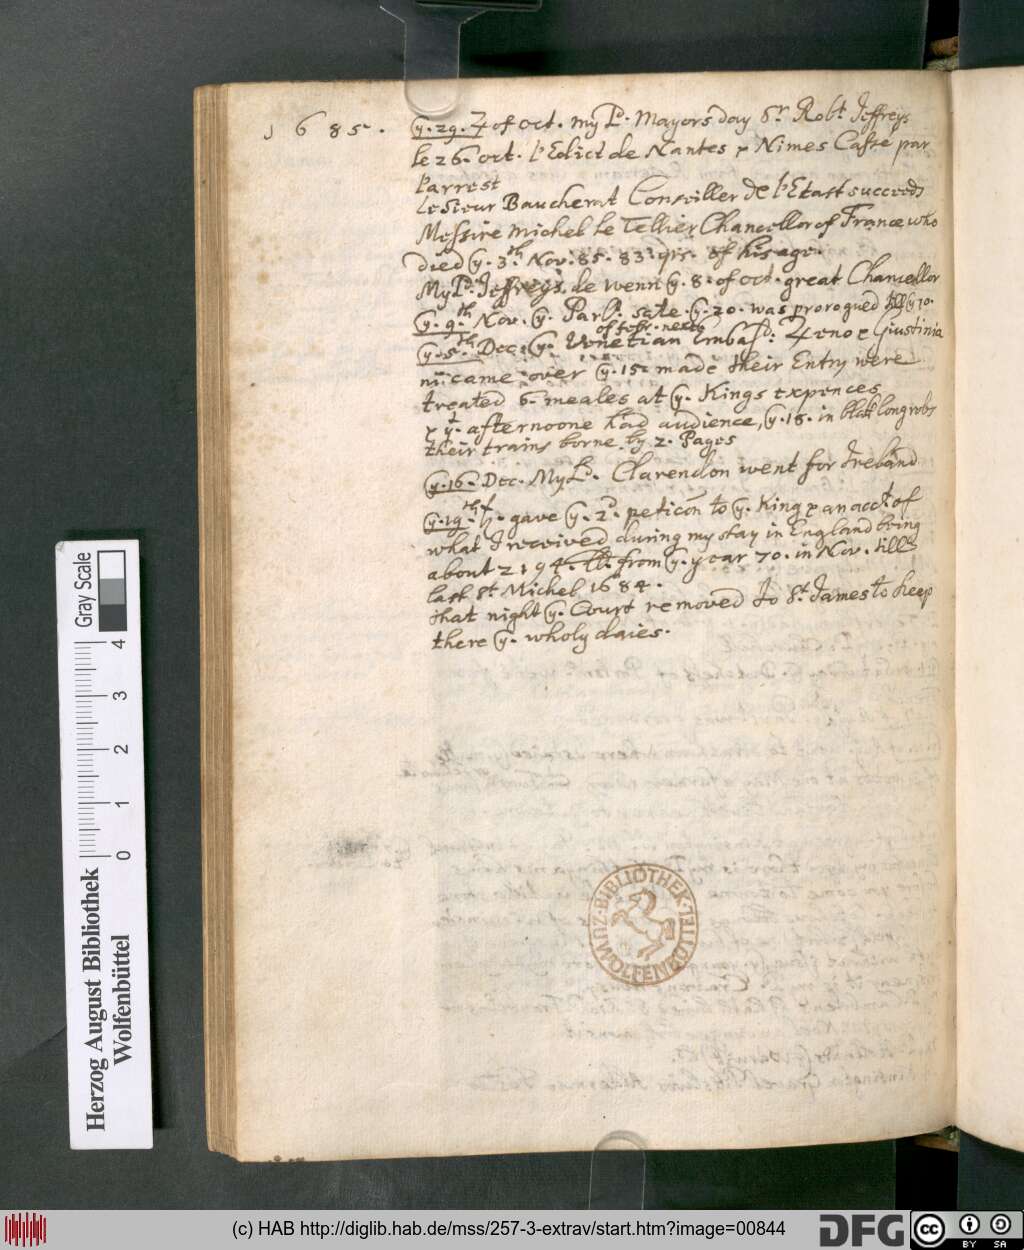 1685.
y. 29. ♃ of oct. my Ld. Mayors day Sr. Robt Jeffreijs
le 26. oct. l'Edict de Nantes & Nimes Casse par
l'arrest
le Sieur Baucherat Conseiller de l'Estatt succeeds
Messire Michel le Tellier Chancellor of France who
died y. 3th. Nov. 85. 83. yrs. of his age.
My Ld. Jeffreijs, de wenn y. 8. of oct. great Chancellor
y. 9th. Nov. y. Parl. sate. y. 20. was prorogued till y 10.
of febr. next
y. 5th. Dec. y. Venetian Embassd. Zeno e Giustinia
ni came over y. 15. made their Entry were
treated 6. meales at y. Kings expences
& yt. afternoone had audience, y. 18. in black long robs
their trains borne by 2. Pages
y. 16. Dec. My Ld. Clarendon went for Ireland
y. 19th. ♄. gave y. 2d. peticon to y. King & an acct of
what I received during my stay in England being
about 2194. lb. from y. year 70. in Nov. till
last St Michel 1684.
that night y. Court removed to St. James to keep
there y. wholy daies.
BIBLIOTHEK WOLFENBÜTTEL
Herzog August Bibliothek
Wolfenbüttel
Gray Scale
0 1 2 3 4
(c) HAB http://diglib.hab.de/mss/257-3-extrav/start.htm?image=00844
DFG
CC BY SA